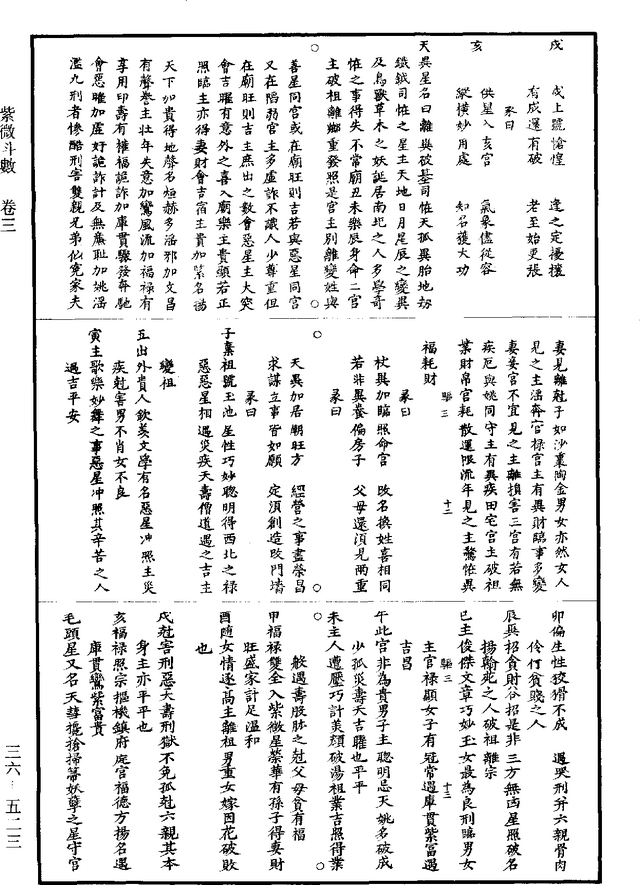 紫微斗數 卷三
戌 戌上號愴惶 逢之定擾攘
有成還有破 老至始更張
亥 彖曰
供星入亥宮 氣象儘從容
縱橫妙用處 知名獲大功
天異星名曰離與破墓司恠天孤異胎地劫
鐵鉞司恠之星主天地日月星辰之變異
及鳥獸草木之妖誕居南北之人多學奇
恠之事得失不常廟丑未樂辰身命二宮
主破祖離鄉重發照是宮主別離變姓與
○
善星同宮或在廟旺則吉若與惡星同宮
又在陷弱宮主多虛詐不識人少尊重但
在廟旺則吉主庶出之數會惡星主大突
會吉曜有意外之喜入廟樂主貴顯若正
照臨主亦得妻財會吉宿主貴加紫名揚
天下加貴得地聲名烜赫多淫邪加文昌
有聲譽主壯年失意加鸞風流加福祿有
享用印壽有權福詭詐加庫貫驟發奔馳
會惡曜加虛好詭詐計及無廉恥加姚淫
濫九刑者慘酷刑害雙親兄弟仙寃家夫
妻見離尅子如沙裏陶金男女亦然女人
見之主淫奔官祿宮主有異財臨事多變
妻妾宮不宜見之主離損害三宮有若無
疾厄與姚同守主有異疾田宅宮主破祖
業財帛官耗散還限流年見之主驚恠異
福耗財
彖曰
杖異加臨照命宮 改名換姓喜相同
若非異養偏房子 父母還須見兩重
彖曰
○
天異加居廟旺方 經營之事盡榮昌
求謀立事皆如願 定須創造改門墻
彖曰
子棄祖號玉池星性巧妙聰明得西北之祿
惡惡星相遇災疾天壽僧道遇之吉主
變祖
丑出外貴人欽羨文學有名惡星冲照主災
疾尅害男不肖女不良
寅主歌樂妙舞之事惡星冲照其辛苦之人
遇吉平安
卯偏生性狡猾不成 遇哭刑并六親骨肉
伶仃貧賤之人
辰與招貪財谷招是非三方無凶星照破名
揚翰苑之人破祖離宗
巳主俊傑文章巧妙玉女最為良刑臨男女
主官祿顯女子有冠常過庫貫紫富遇
吉昌
午此宮非為貴男子主聰明忌天姚多破成
少孤災壽夭吉曜也平平
未主人遭壓巧計美顏破湯祖業吉照得業
○
般遇壽股肱之尅父母貧有福
甲福祿雙全入紫微星榮華有孫子得妻財
旺盛家計足溫和
酉隨女情逐高主離祖男重女嫁因花破敗
也
戌尅害刑惡天壽刑獄不免孤尅六親其本
身主亦平平也
亥福祿照宗摳機鎮府處官福德方揚名遇
庫貫鸞紫富貴
毛頭星又名天彗攙搶掃箒妖孽之星守官
三六·五二三